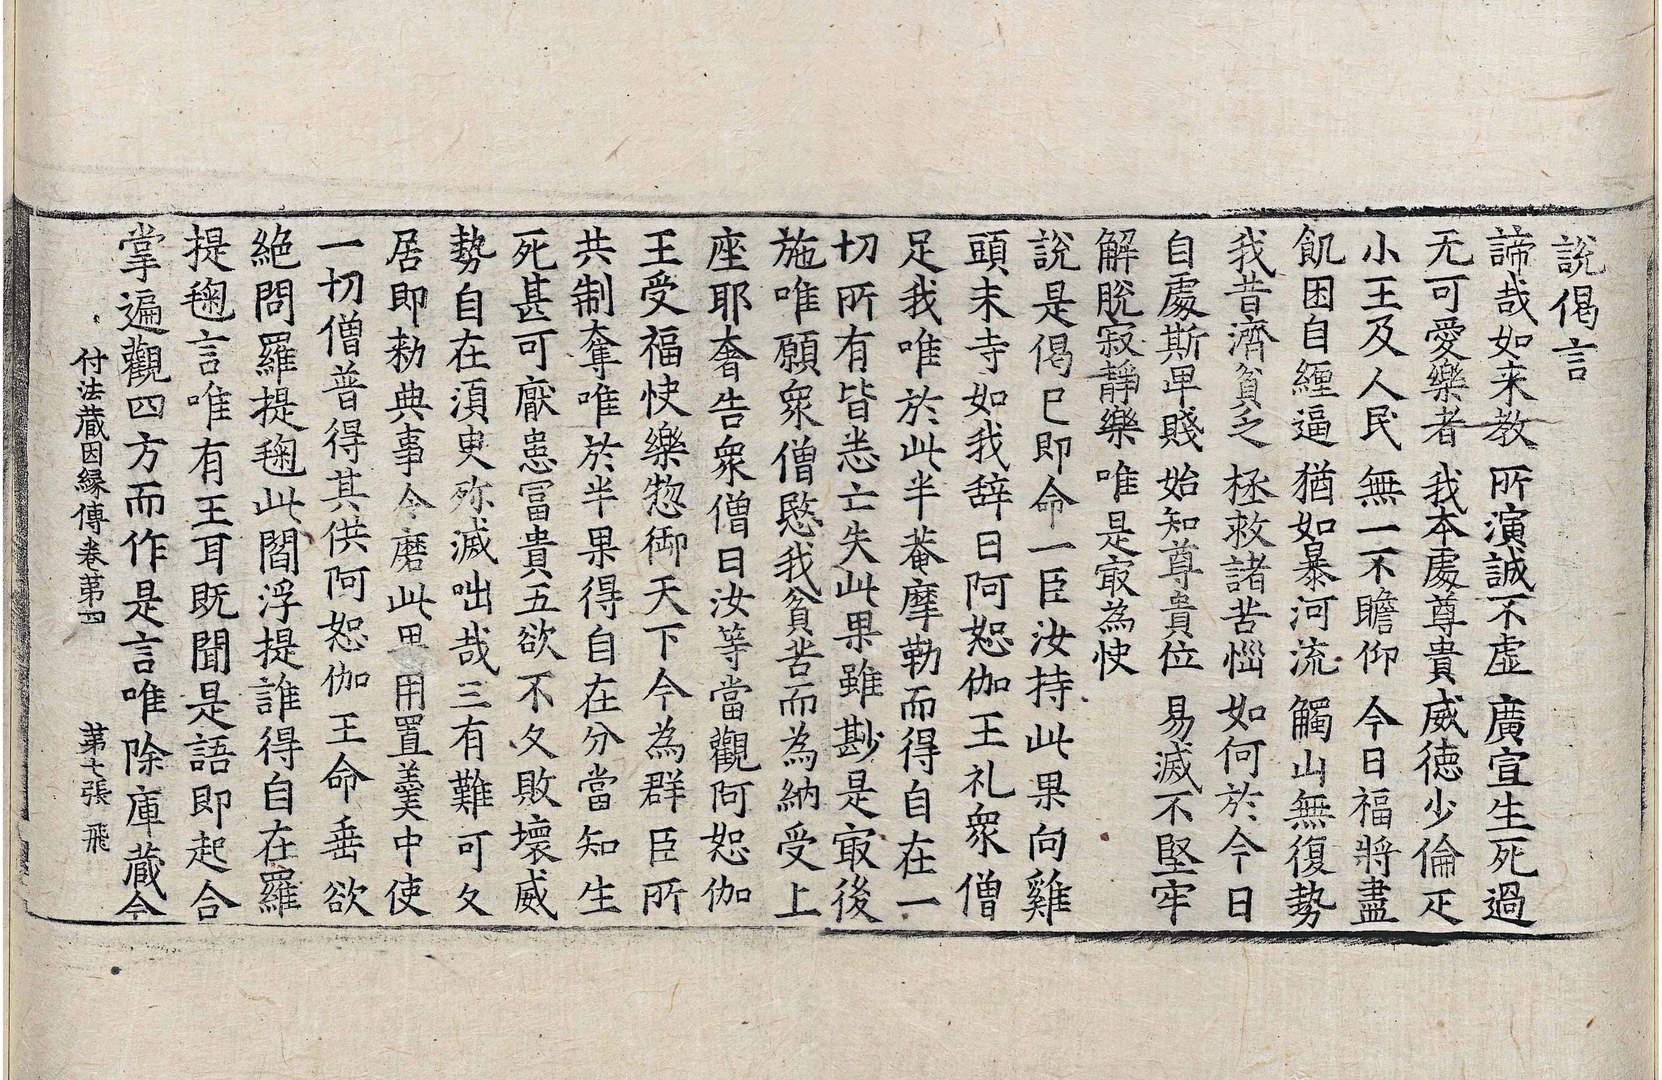 說偈言
諦哉如来教　所演誠不虛　廣宣生死過
无可愛樂者　我本處尊貴　威德少倫疋
小王及人民　無一不瞻仰　今日福將盡
飢困自纏逼　猶如暴河流　觸山無復勢
我昔濟貧乏　拯救諸苦惱　如何於今日
自處斯卑賤　始知尊貴位　易滅不堅牢
解脫寂靜樂　唯是㝡為快
說是偈已即命一臣汝持此果向雞
頭末寺如我辞曰阿恕伽王礼衆僧
足我唯於此半菴摩勒而得自在一
切所有皆悉亡失此果雖尠是㝡後
施唯願衆僧愍我貧苦而為納受上
座耶奢告衆僧曰汝等當觀阿恕伽
王受福快樂惣御天下今為群臣所
共制奪唯於半果得自在分當知生
死甚可厭患冨貴五欲不久敗壞威
勢自在湏臾殄滅咄哉三有難可久
居即勑典事令磨此果用置羹中使
一切僧普得其供阿恕伽王命垂欲
絶問羅提毱此閻浮提誰得自在羅
提毱言唯有王耳既聞是語即起合
掌遍觀四方而作是言唯除庫藏今
付法藏因緣傳卷第四　第七張　飛